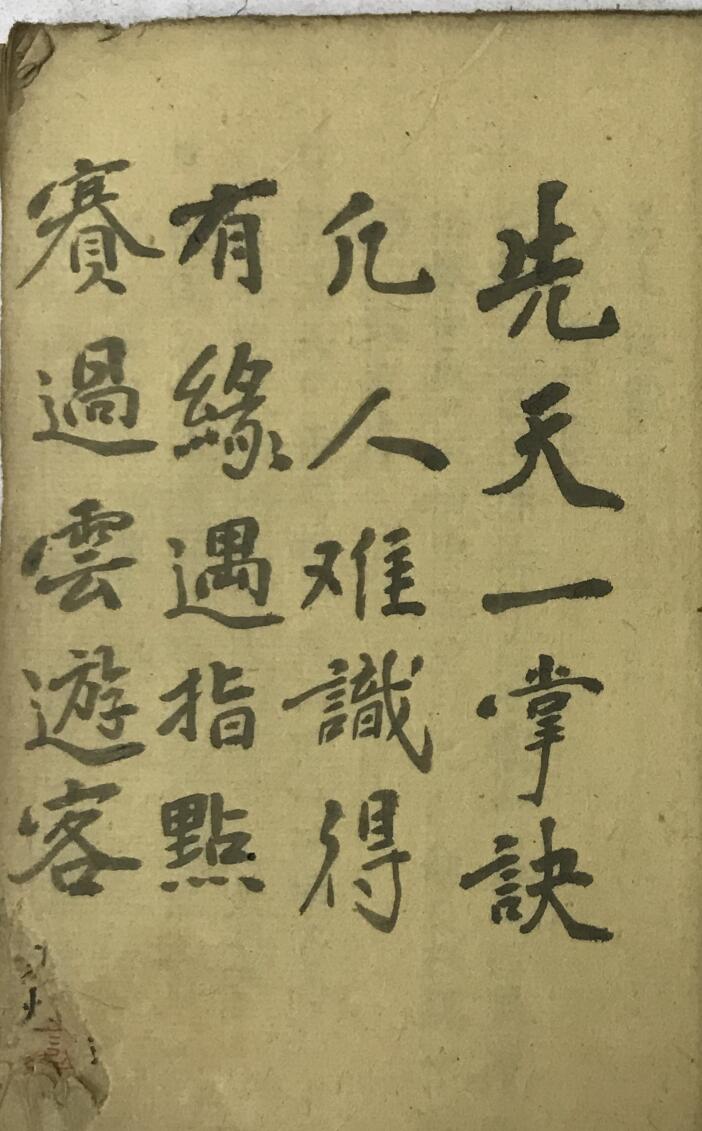 先天一掌訣
凢人难識得
有緣遇指點
賽過雲遊客